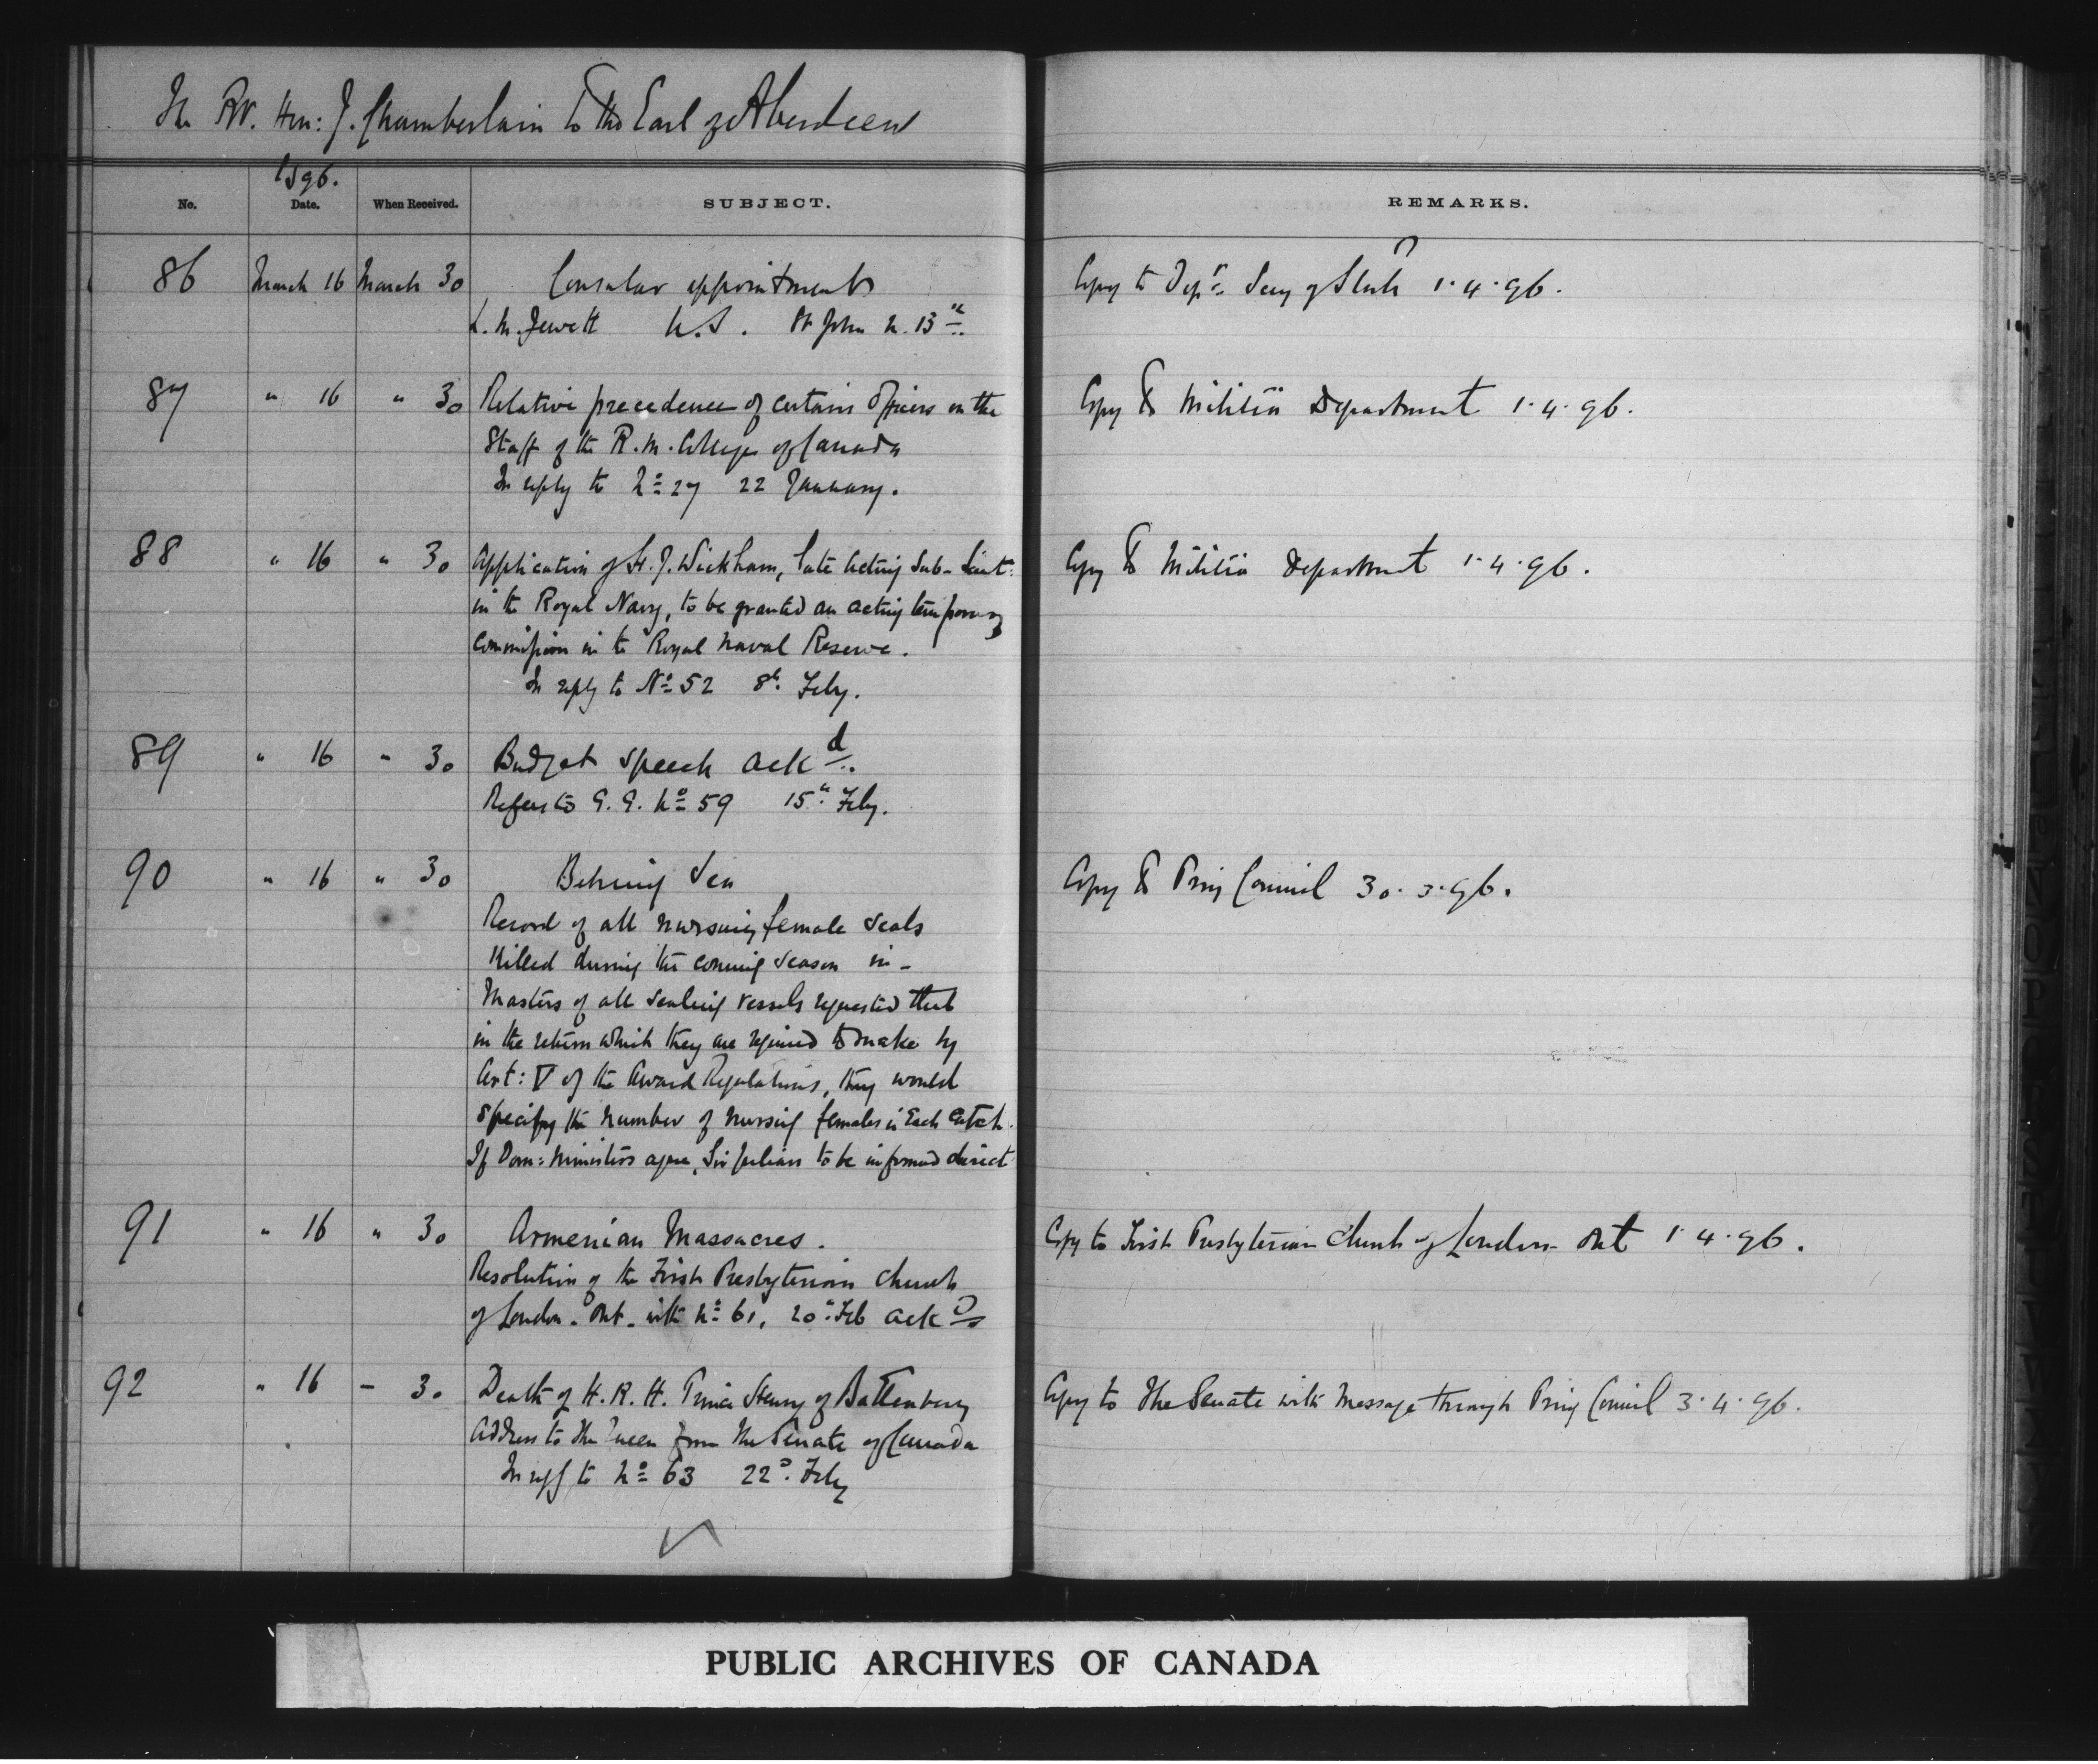 The Rt. Hon: J. Chamberlain to the Earl of Aberdeen
1896.
No. Date. When Received. SUBJECT. REMARKS.
86 March 16 March 30 Consular appointments Copy to Depy. Secy of State 1.4.96.
L.M. Jewett U.S. St John N.B.
87 " 16 " 30 Relative precedence of certain Officers on the Copy to Militia Department 1.4.96.
Staff of the R.M. College of Canada
In reply to No 27 22 January.
88 " 16 " 30 Application of H.J. Wickham, late Acting Sub-Lieut: Copy to Militia Department 1.4.96.
in the Royal Navy, to be granted an acting temporary
Commission in the Royal Naval Reserve.
In reply to No 52 8th Feby.
89 " 16 " 30 Budget speech ackd.
Refers to G.G. No 59 15th Feby.
90 " 16 " 30 Behring Sea Copy to Privy Council 30.3.96.
Record of all nursing female seals
killed during the coming season in -
Masters of all sealing vessels requested that
in the return which they are required to make by
Art: V of the Award Regulations, they would
specify the number of nursing females in each catch.
If Dom: Ministers agree, Sir Julian to be informed direct
91 " 16 " 30 Armenian Massacres. Copy to First Presbyterian Church of London Ont 1.4.96.
Resolution of the First Presbyterian Church
of London - Ont - with No 61, 20th Feb ackd
92 " 16 - 30 Death of H.R.H. Prince Henry of Battenberg Copy to The Senate with Message through Privy Council 3.4.96.
Address to the Queen from the Senate of Canada
In reply to No 63 22d. Feby
PUBLIC ARCHIVES OF CANADA